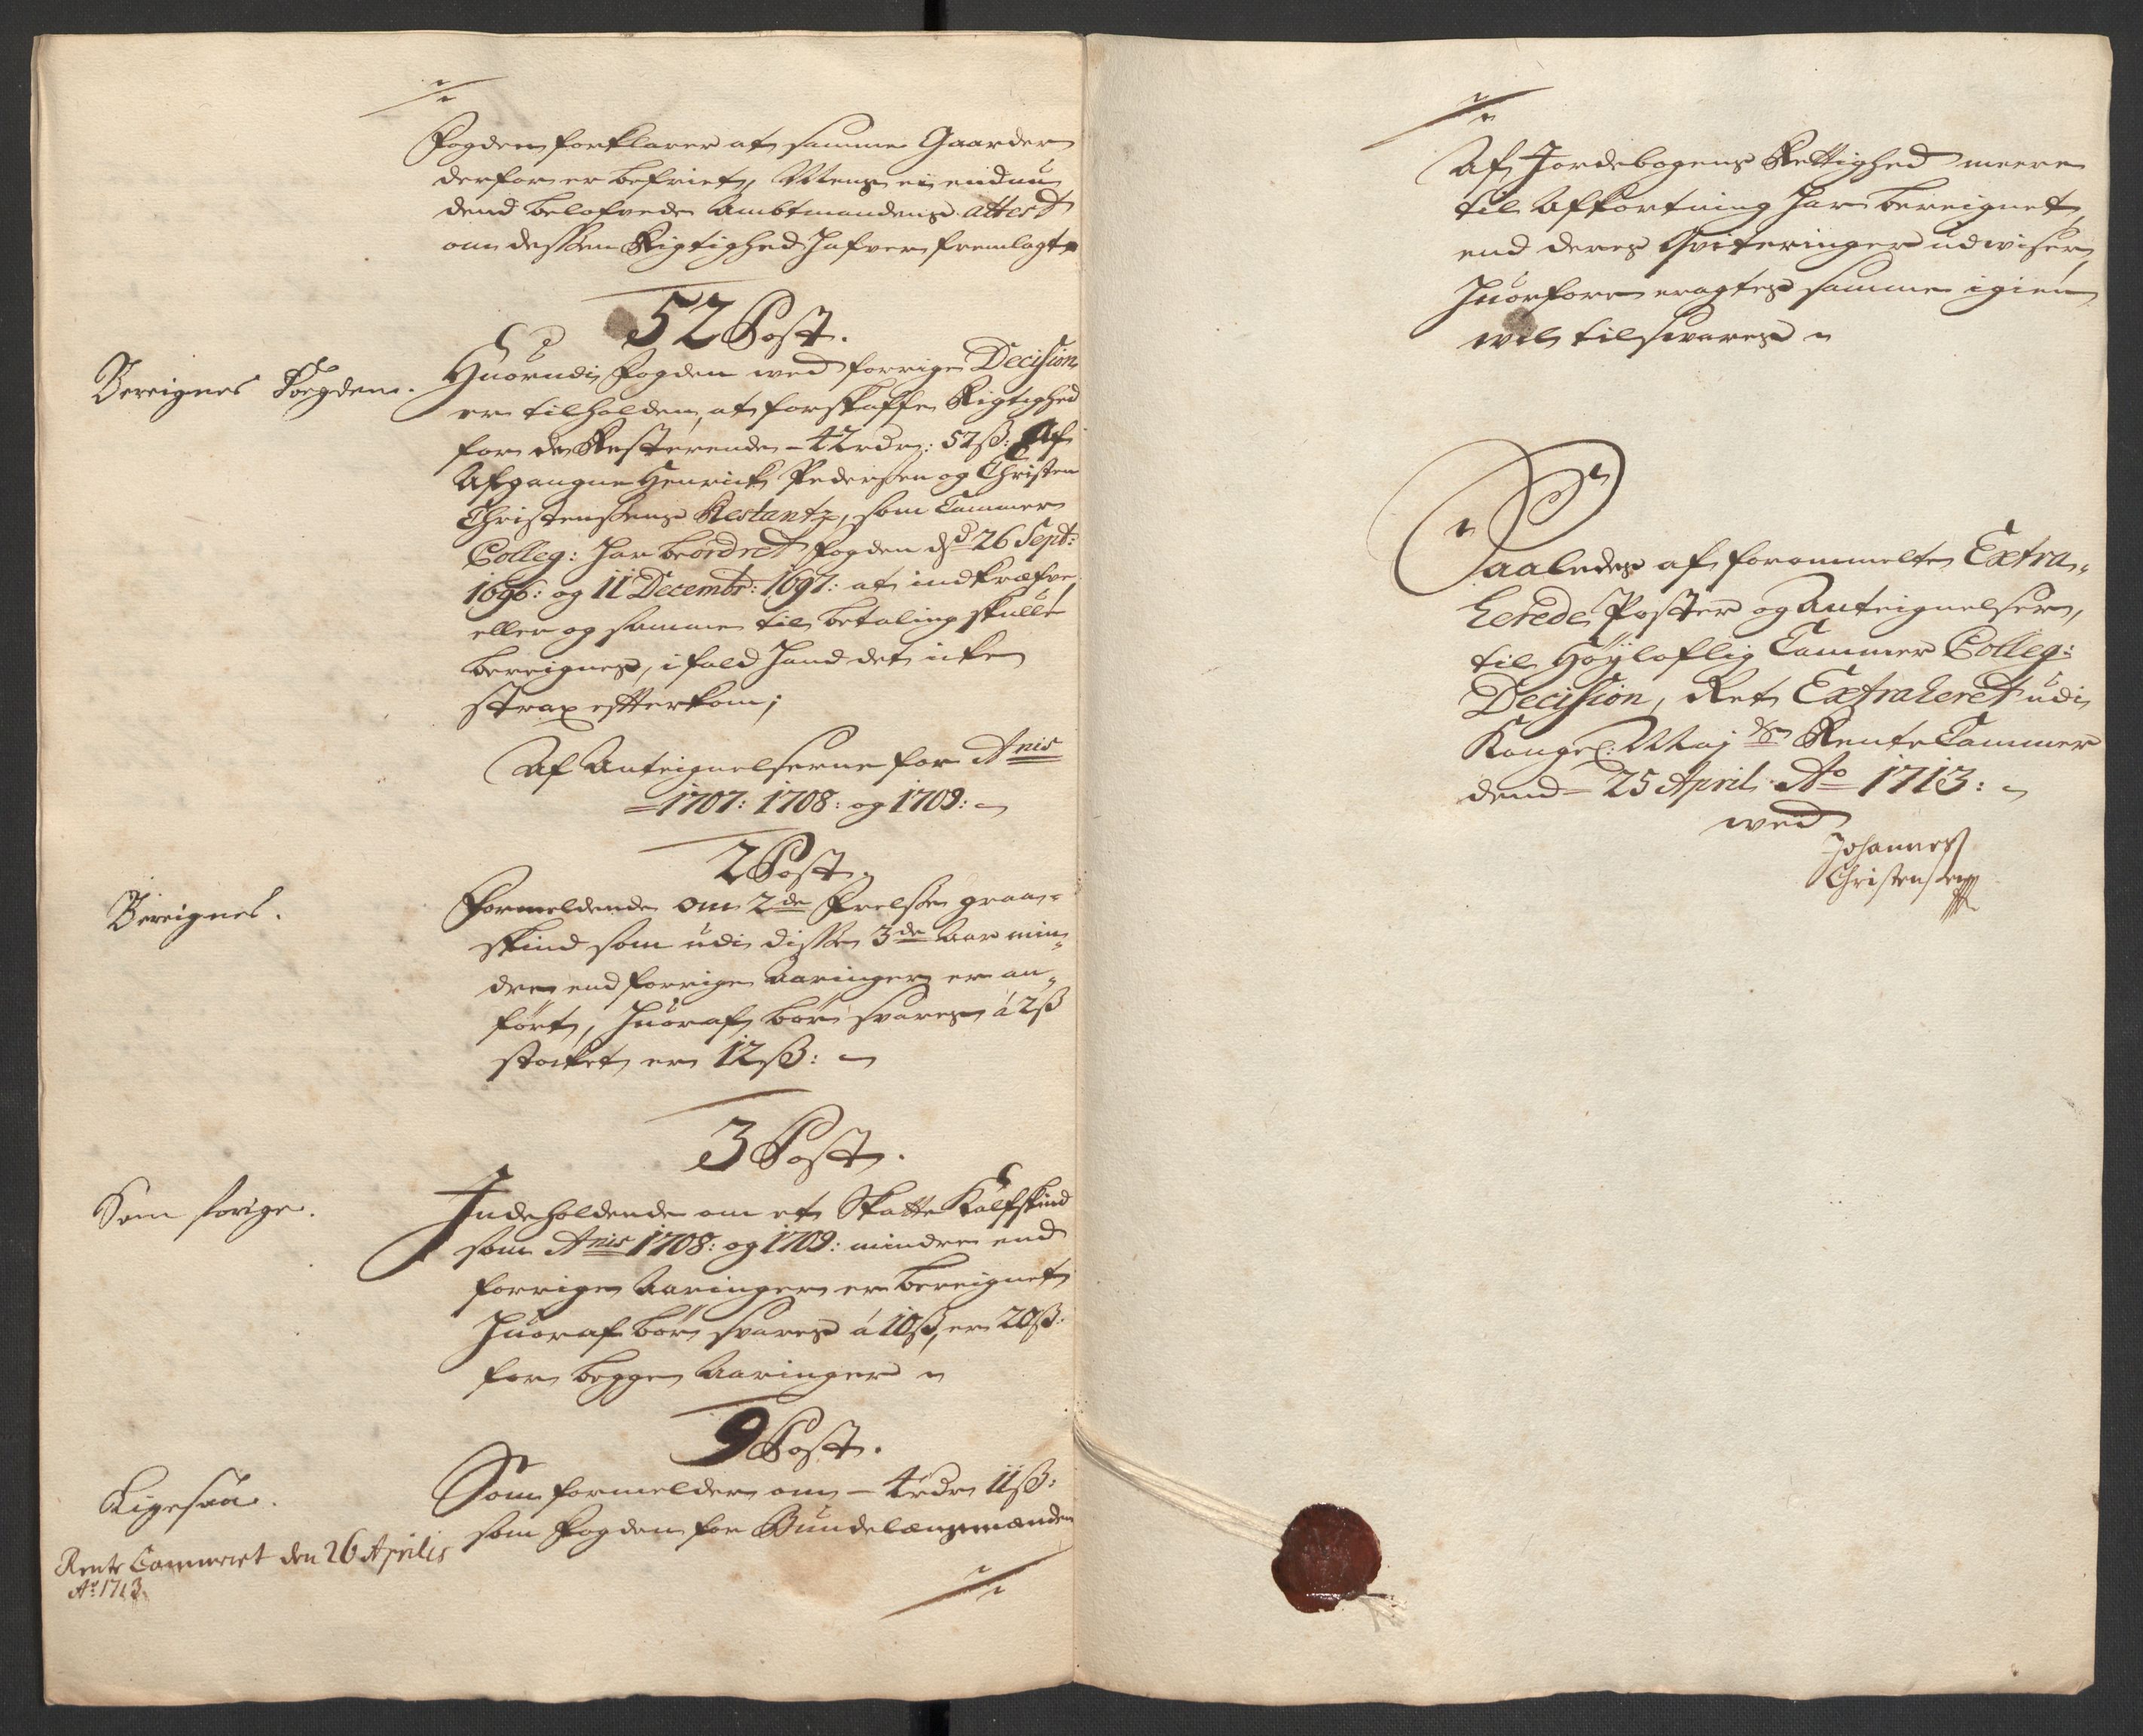 Fogden forklarer at samme Gaarder
derfor er befriet, Mens ei endnu
dend belofvede Ambtmandens attest
om dessen Rigtighed hafver fremlagt
52 Post.
Bereignes Foegden.
Huorudi Fogden wed forrige Decision
er tilholden, at forskaffe Rigtighed
for de Resterende - 42 rdr: 52 ß: Af
Afgangne Henrich Pedersen og Christen
Christensens Restantz, som Cammer
Colleg: har beordret Fogden dend 26 Sept:
1696: og 11 Decembr: 1697: at indkræfve,
eller og samme til betaling skulle
bereignes, ifald hand det icke
strax efterkom;
Af Anteignelserne for Anis
1707: 1708: og 1709:
2 Post.
Bereignes.
Formeldende om 2de Frelse graa-
skind som udi disse 3de Aar min-
dre end forrige Aaringer er an-
ført, huoraf bør svares á 2 ß
stocket er 12 ß:
3 Post.
Som forige.
Indeholdende om et Skatte Kalfskind
som Anis 1708: og 1709: mindre end
forrige Aaringer er bereignet
huoraf bør svares á 10 ß, er 20 ß:
for begge Aaringer
9 Post.
Ligesaa.
Som formelder om - 4 rdr 11 ß:
som Fogden for Bundelænsmænden
Rente Cammeret den 26 Aprilis
Ao 1713.
Af Jordebogens Rettighed meere
til Afkortning har bereignet,
end deres Qviteringer udwiser,
huorfore eragtes samme igien
wel tilsvares
Saaledes af forommelte Extra-
herede Poster og Anteignelser,
til Høyloflig Cammer Colleg:
Decision, Ret Extraheret udi
Kongel: Maj:ts Rente Cammer
dend 25 April Ao 1713:
wed
Johannes
Christensen